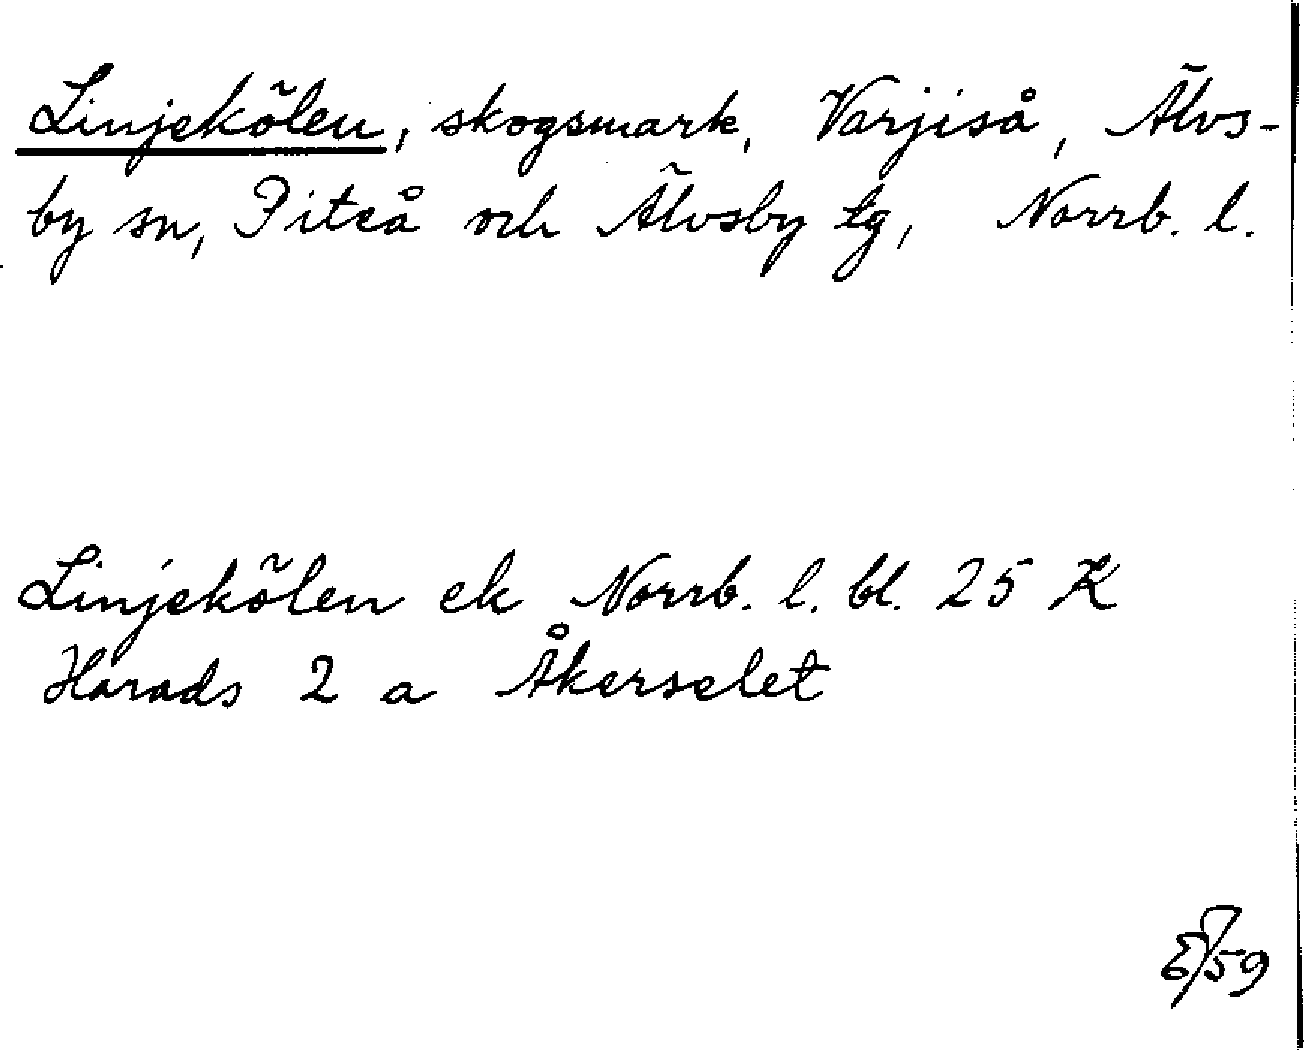 Linjekölen, skogsmark, Varjiså, Älvs-
by sn, Piteå och Älvsby tg, Norrb. l.
Linjekölen ek Norrb. l. bl. 25 K
Harads 2 a Åkerselet